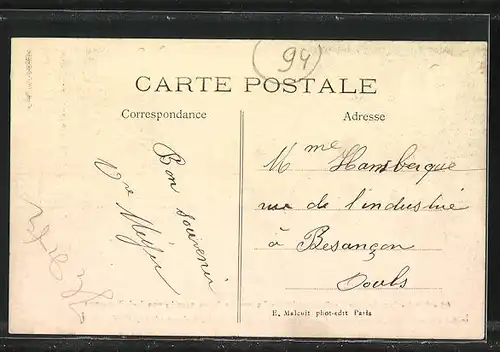 94
CARTE POSTALE
Correspondance
Adresse
Bon souvenir
Mme Hansberque
rue de l'industrie
à Besançon
Doubs
E. Malcuit phot-edit Paris